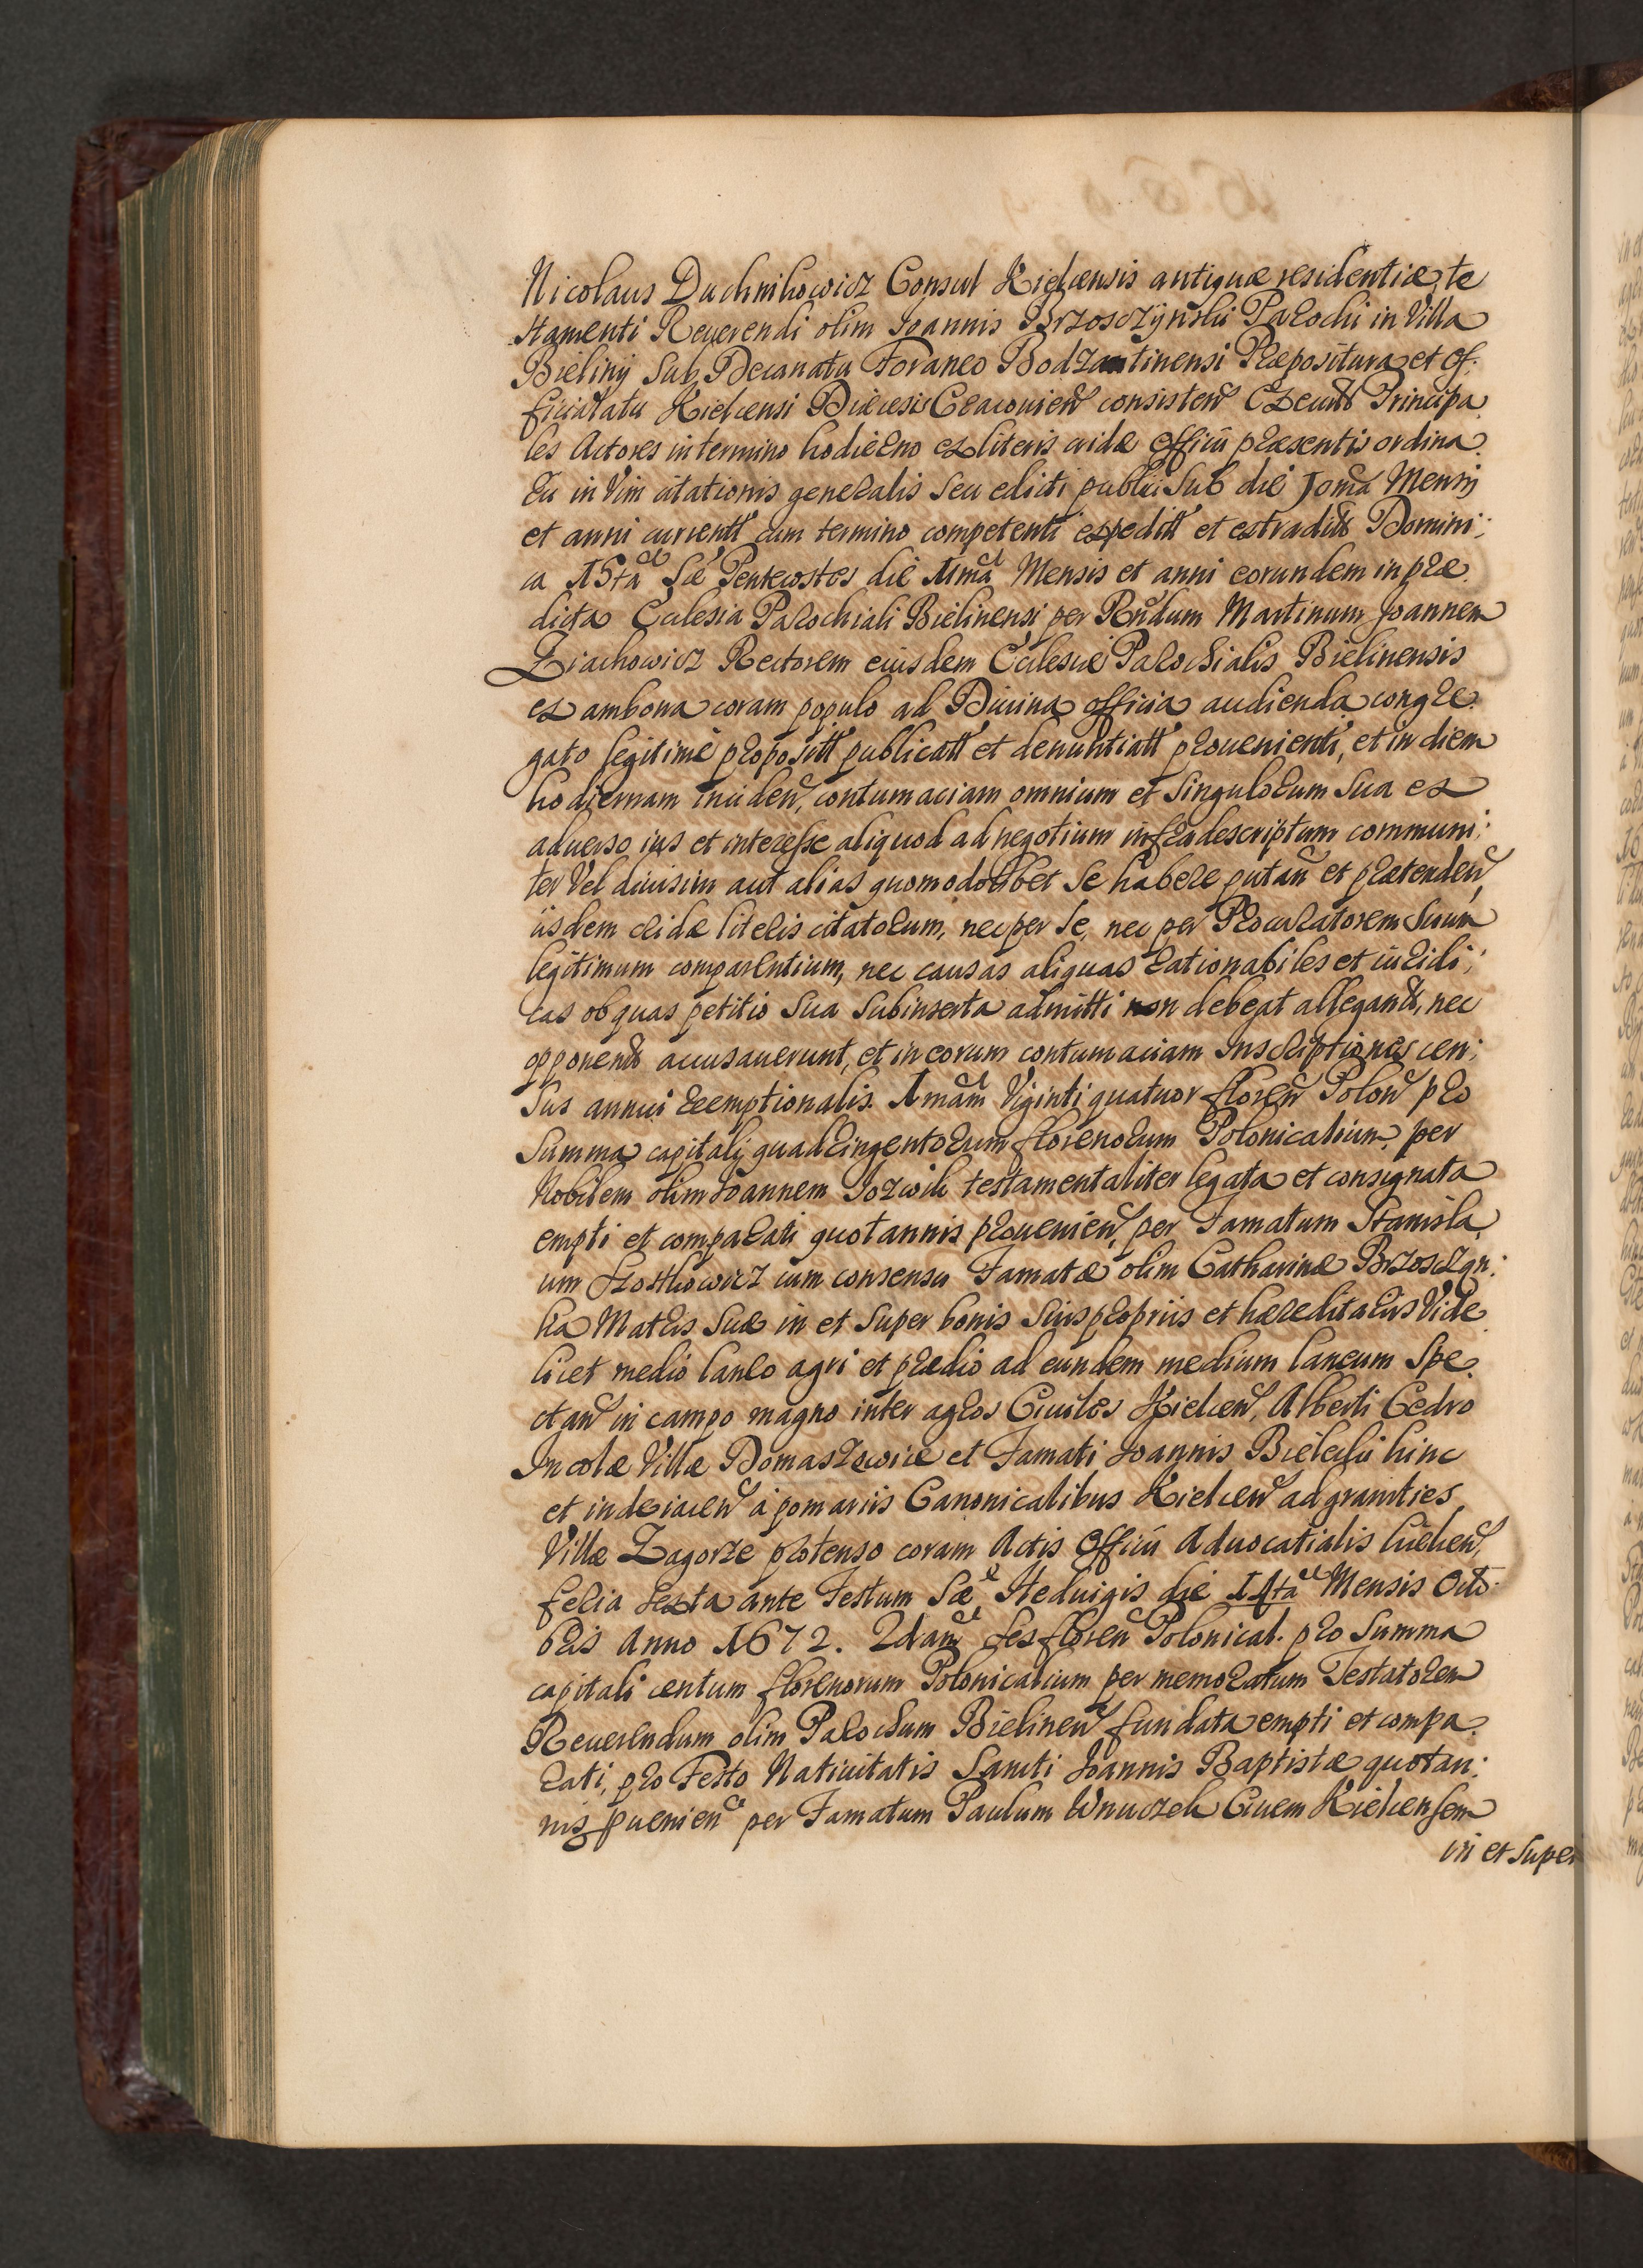 Nicolaus Duchnikowicz Consul Kielcensis antiquæ residentiæ, te
stamenti Reuerendi olim Joannis Brzosczÿnski Parochi in Villa
Bielinÿ Sub Decanatu Foraneo Bodzantinensi Præpositura et of:
ficiolatu Kielcensi Diæcesis Cracouien consisten Principa
les Actores in termino hodierno ex literis cridæ officii præsentis ordina
in Vim citationis generalis Seu edicti publici Sub die Mensis
et anni currentt cum termino competenti expeditt et extradit Domini:
ca 15ta Pentecostes die 11ma Mensis et anni eorundem in præ
dicta Ecclesia Parochiali Bielinensi per Rndum Martinum Joannem
Ziachowicz Rectorem eiusdem Ecclesiæ Parochialis Bielinensis
ex ambona coram populo ad Diuina officia audienda congre
gato legitimè propositt publicatt et denuntiatt prouenienti, et in diem
hodiernam inciden, contumaciam omnium et Singulorum Sua ex
aduerso ius et interesse aliquod ad negotium infradescriptum communi:
ter Vel diuisim aut alias quomodolibet Se habere putan et prætenden,
iisdem cridæ literis citatorum, nec per Se, nec per Procuratorem Suum
legitimum comparentium, nec causas aliquas rationabiles et iuridi:
cas ob quas petitio Sua Subinserta admitti non debeat allegand, nec
opponend accusauerunt, et in eorum contumaciam Inscriptiones cen:
Sus annui reemptionalis. 1mam Viginti quatuor floren Polon pro
Summa capitali quadringentorum florenorum Polonicalium, per
Nobilem olim Joannem Jozwik testamentaliter legata et consignata
empti et comparati quotannis prouenien, per Famatum Stanisla
um Szostkowicz cum consensu Famatæ olim Catharinæ Brzosczan:
ka Matris Suæ in et Super bonis Suis proprijs et hæreditarijs Vide
licet medio laneo agri et prædio ad eundem medium laneum Spe
ctan in campo magno inter agros Ciuiles Kielcen, Alberti Cedro
Incolæ Villæ Domaszewice et Famati Joannis Bielecki hinc
et inde iacen à pomariis Canonicalibus Kielcen ad granities
Villæ Zagorze protenso coram Actis Officii Aduocatialis kielcen,
feria Sexta ante Festum Sæ Heduigis die 14ta Mensis Octo
bris Anno 1672. 2dam Sex floren Polonical. pro Summa
capitali centum florenorum Polonicalium per memoratum Testatorem
Reuerendum olim Parochum Bielinen fundata empti et compa
rati, pro Festo Natiuitatis Sancti Joannis Baptistæ quotan:
nis puenien per Famatum Paulum Wnuczek Ciuem Kielcensem
in et Super